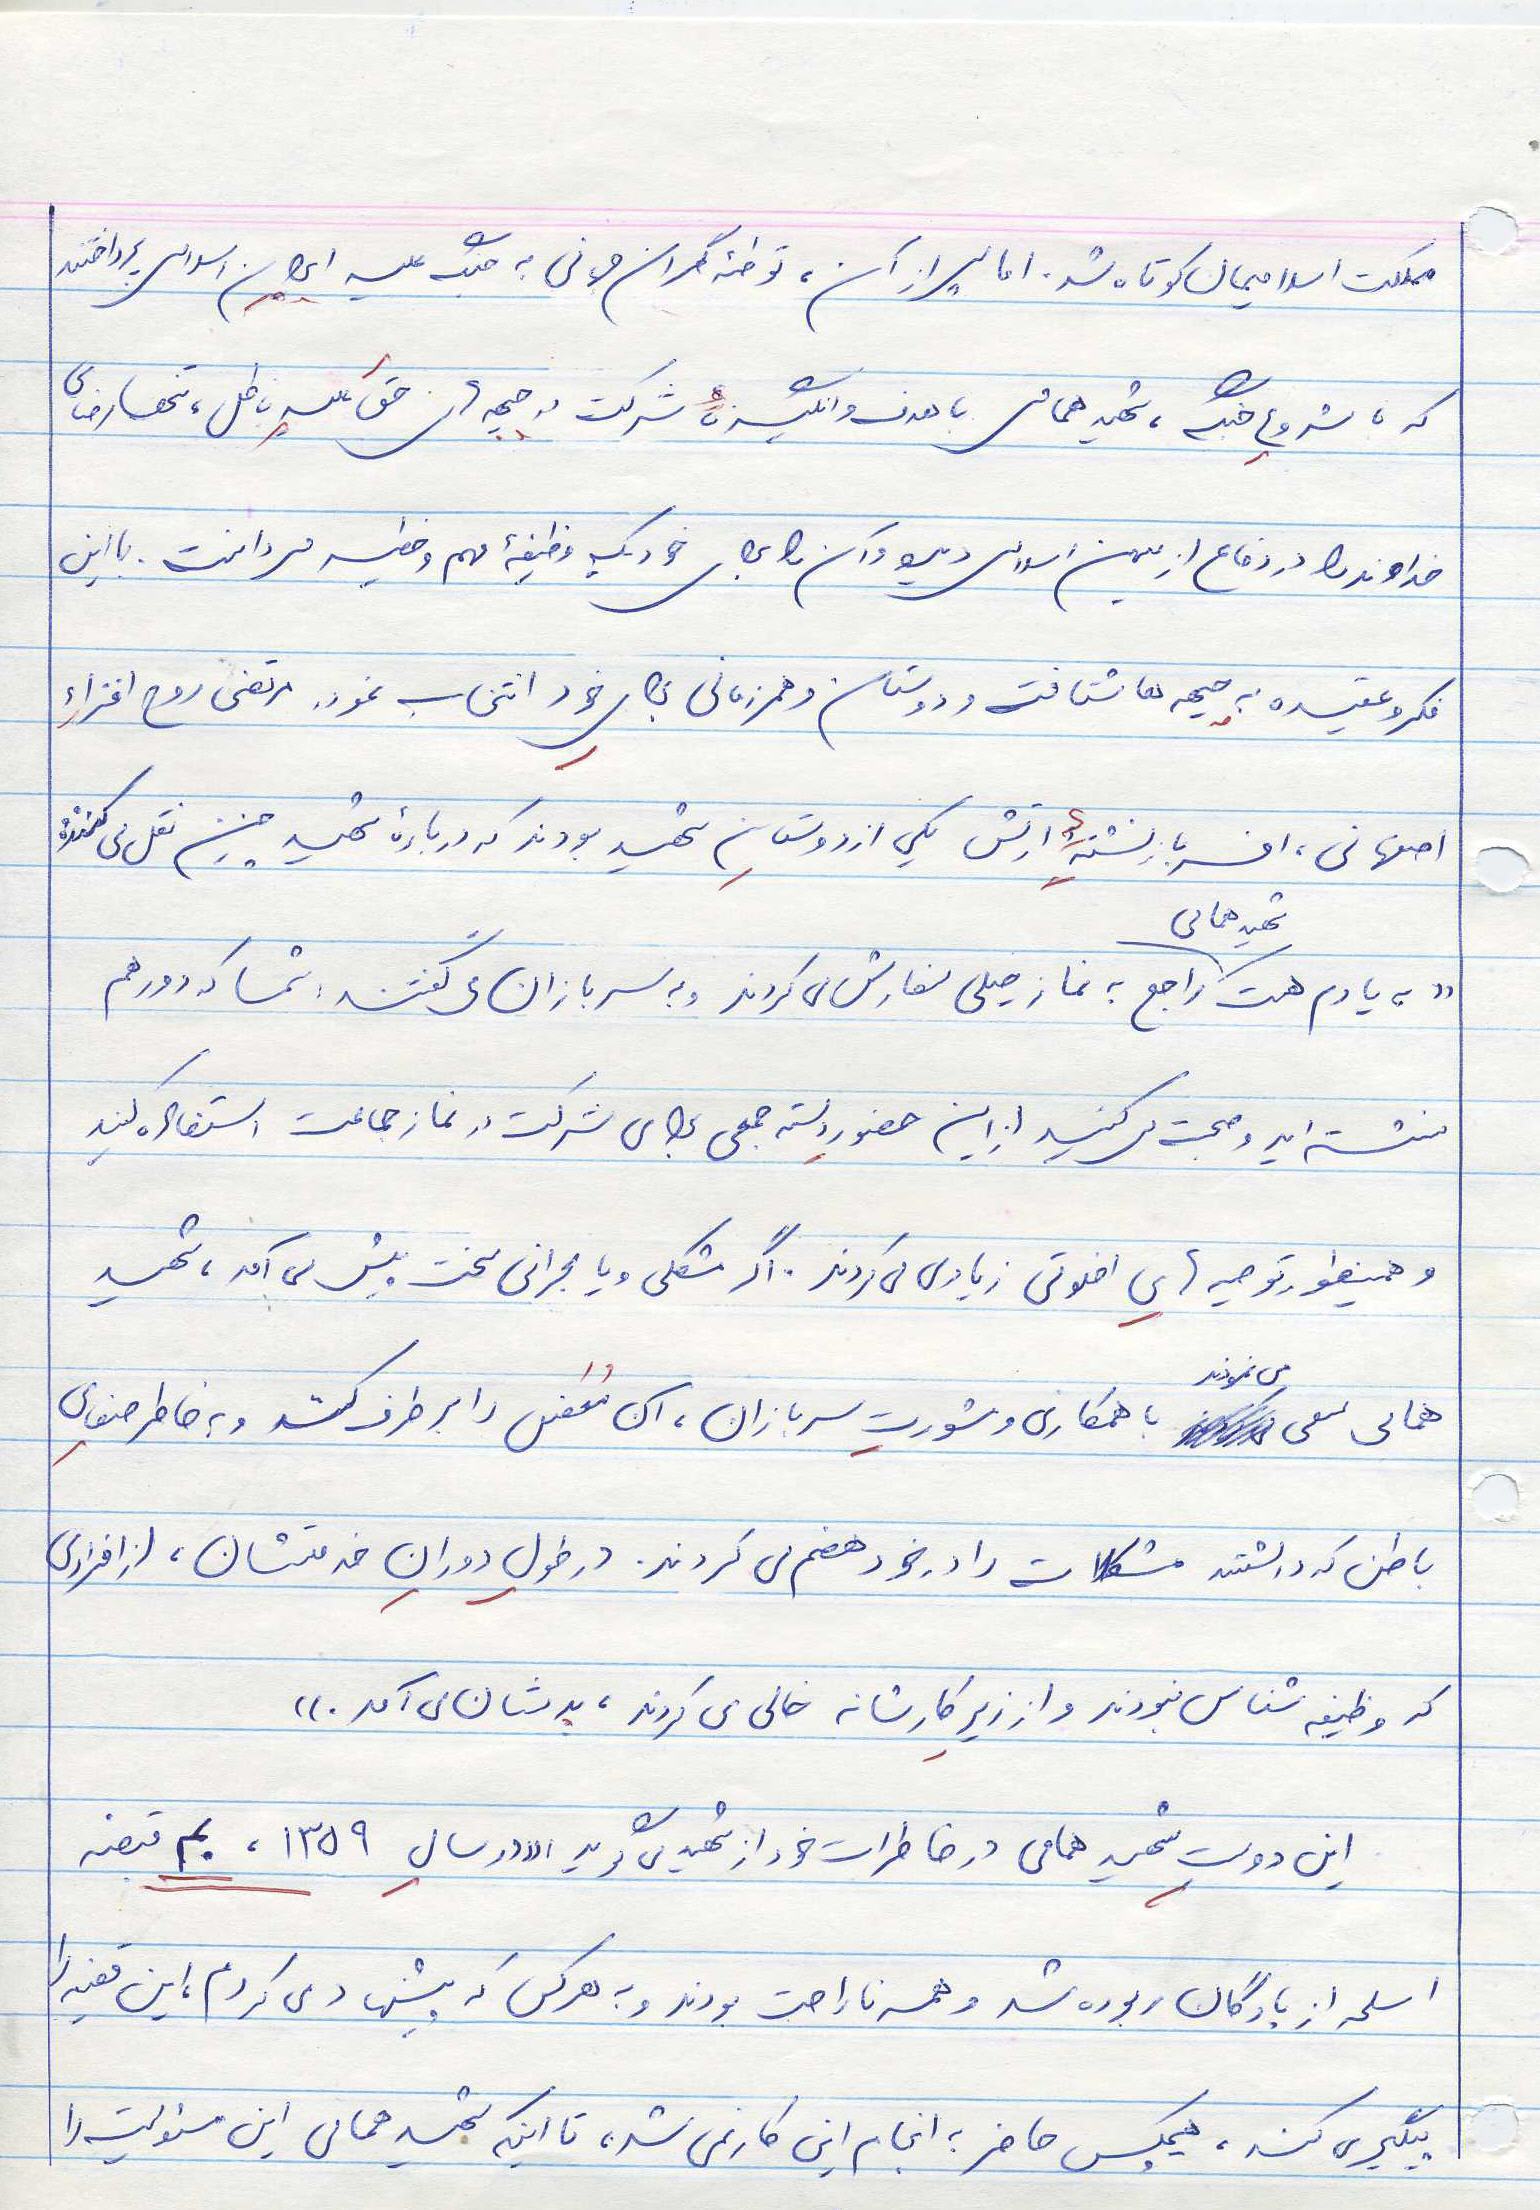 مملکت اسلامیمان کوتاه شد. اما پس از آن، توطئه گران جهانی به جنگ علیه ایران اسلامی پرداختند
که با شروع جنگ، شهید همائی با هدف و انگیزهٔ شرکت در جبهه های حق علیه باطل، تنها رضای
خداوند را در دفاع از میهن اسلامی دید و آن را برای خود یک وظیفهٔ مهم و خطیر می دانست. با این
فکر و عقیده به جبهه ها شتافت و دوستان و همرزمانی برای خود انتخاب نمود. مرتضی روح افزاء
اصفهانی، افسر بازنشستهٔ ارتش یکی از دوستان شهید بودند که دربارهٔ شهید چنین نقل می کنند:
شهید همائی
«به یادم هست راجع به نماز خیلی سفارش می کردند و به سربازان می گفتند: شما که دور هم
نشسته اید و صحبت می کنید از این حضور دسته جمعی برای شرکت در نماز جماعت استفاده کنید
و همینطور توصیه های اخلاقی زیادی می کردند. اگر مشکلی و یا بحرانی سخت پیش می آمد، شهید
می نمودند
همائی سعی با همکاری و مشورت سربازان، آن معضل را برطرف کنند و به خاطر صفای
باطن که داشتند مشکلات را در خود هضم می کردند. در طول دوران خدمتشان، از افرادی
که وظیفه شناس نبودند و از زیر کار شانه خالی می کردند، بدشان می آمد.»
این دوست شهید همائی در خاطرات خود از شهید می گوید «در سال ۱۳۵۹، بم قبضه
اسلحه از پادگان ربوده شد و همه ناراحت بودند و به هر کس که پیشنهاد می کردم، این قضیه را
پیگیری کند، هیچکس حاضر به انجام این کار نمی شد، تا اینکه شهید همائی این مسئولیت را